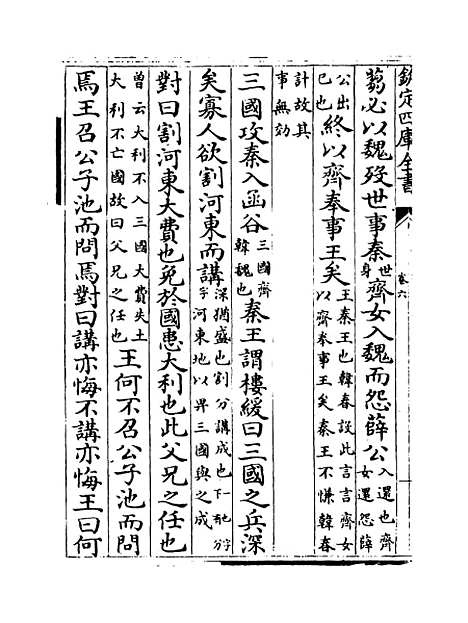 欽定四庫全書
卷六
芻必以魏歿世事秦世身齊女入魏而怨薛公入還也齊女還怨薛
公出已也終以齊奉事王矣王秦王也韓春設此言言齊女以齊奉事王矣秦王不慊韓春
計故其事無効
三國攻秦入函谷三國齊韓魏也秦王謂樓緩曰三國之兵深
矣寡人欲割河東而講深猶盛也割分講成也下一分字字河東地以畀三國與之成
對曰割河東大費也免於國患大利也此父兄之任也
曾云大利不入三國大費失土大利不亡國故曰父兄之任也王何不召公子池而問
焉王召公子池而問焉對曰講亦悔不講亦悔王曰何